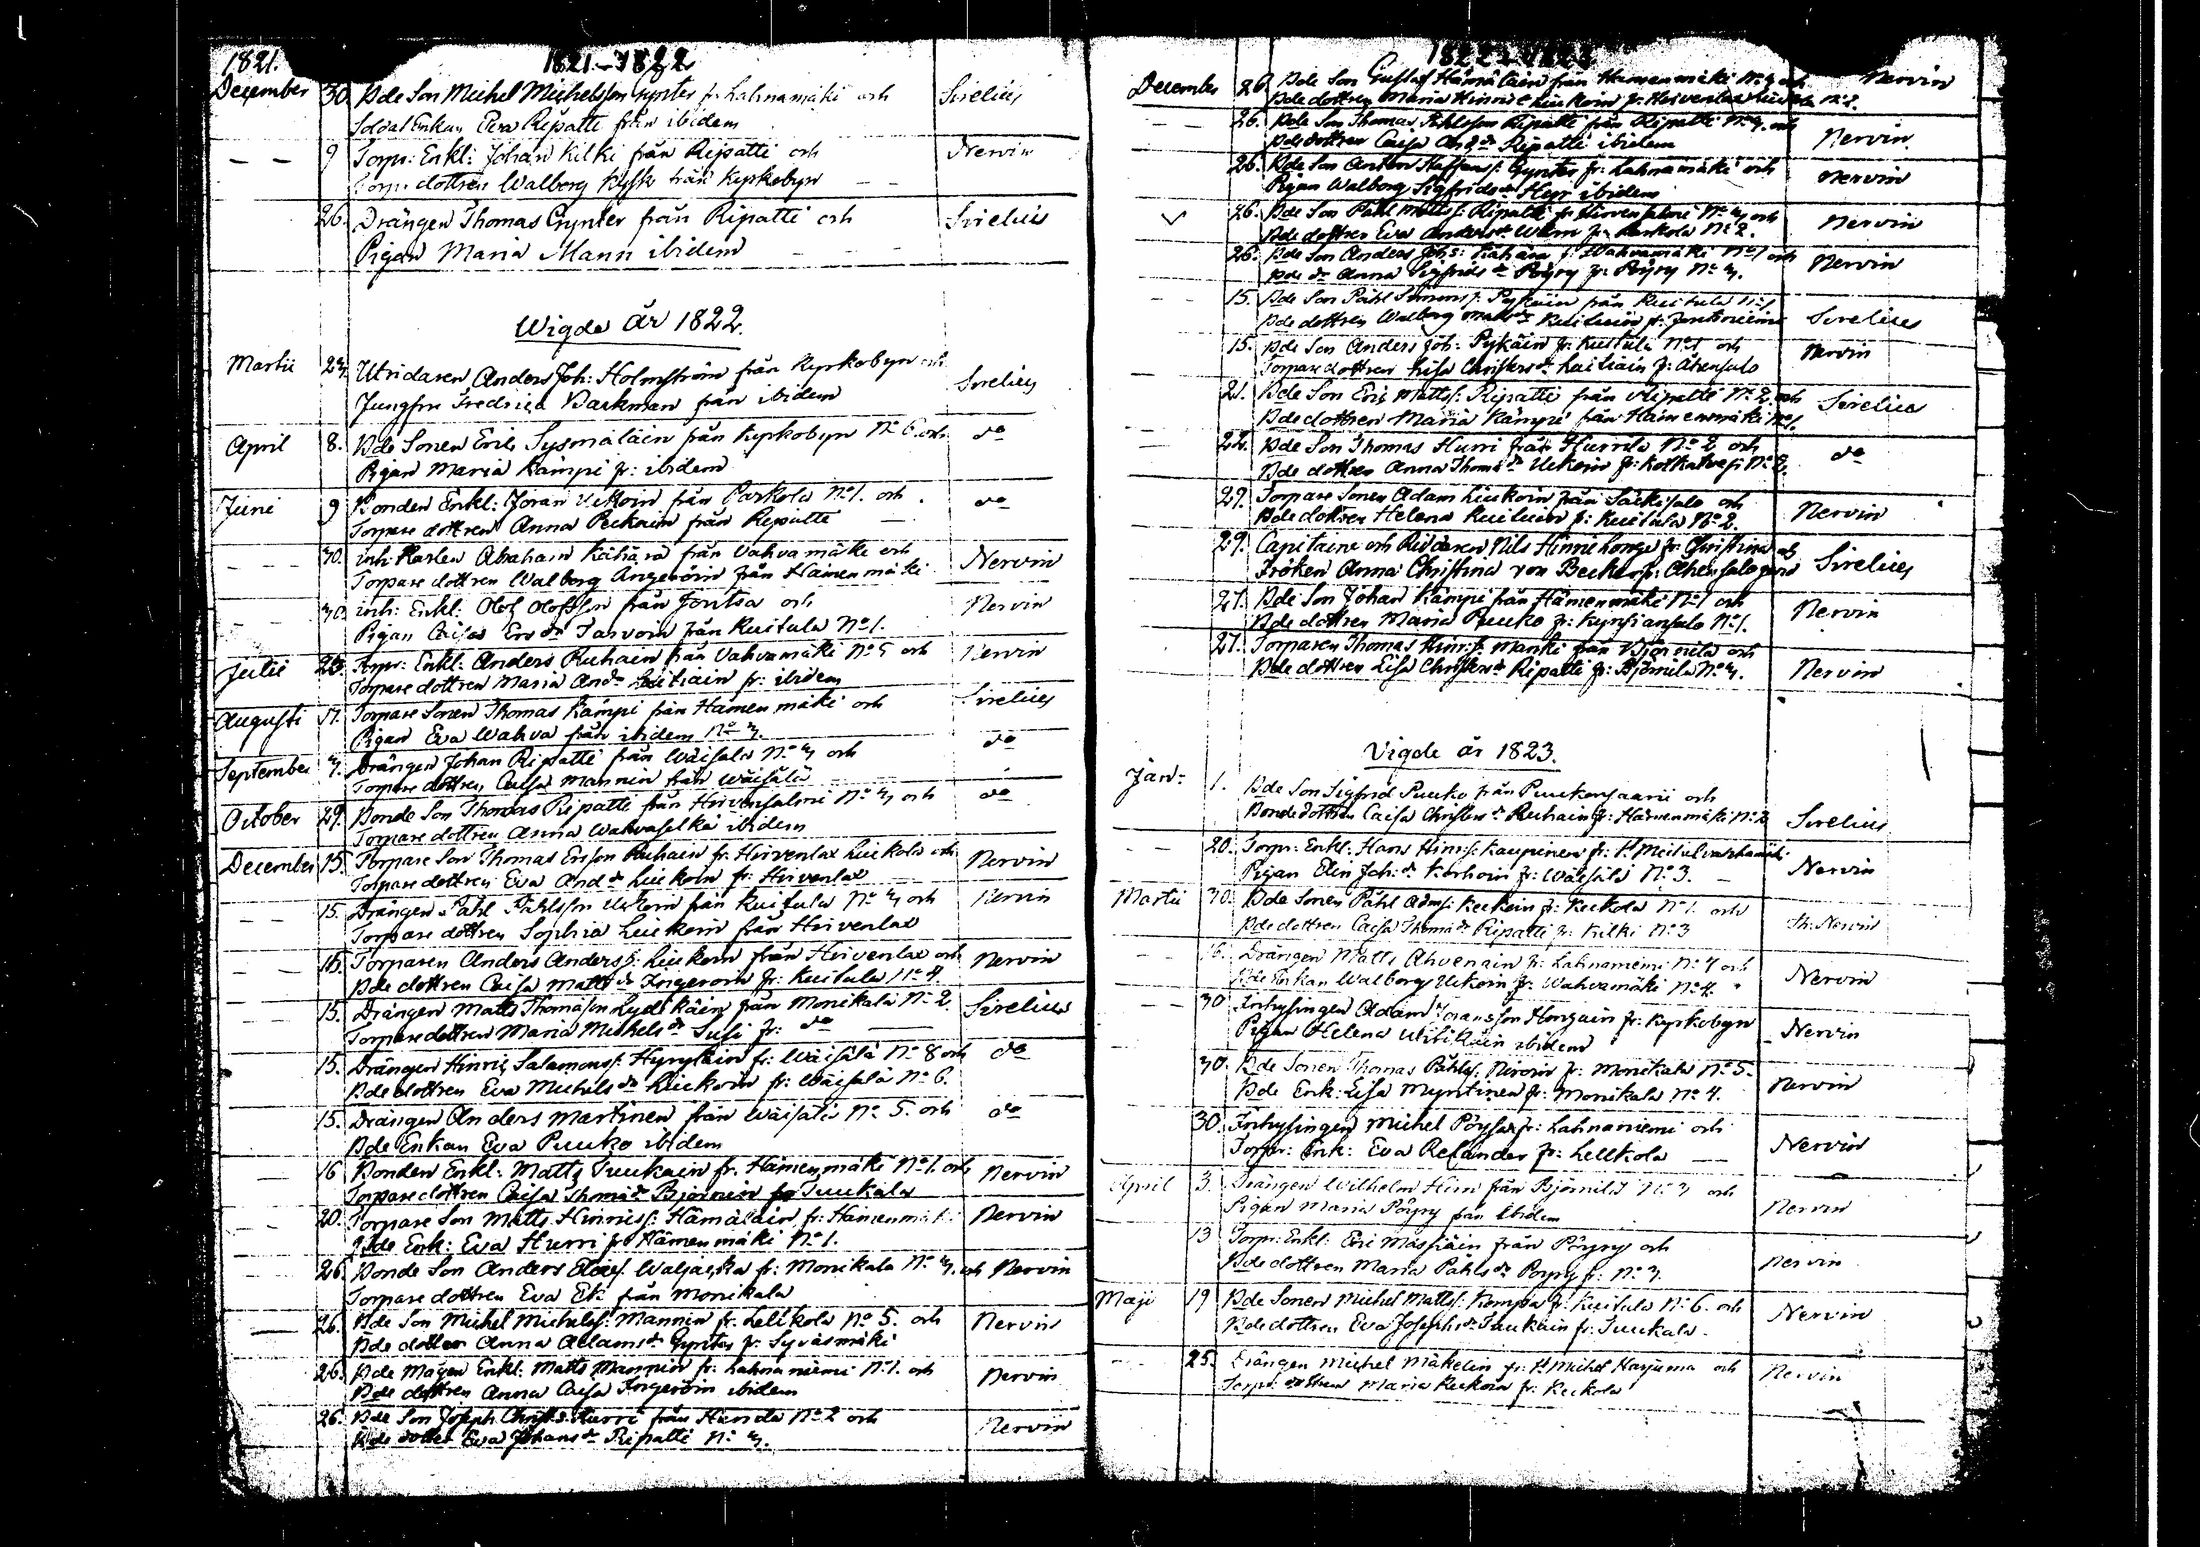 1821.
1821.-1822
December 30. Bde Son Michel Michelsson Gynter fr. Lahnamäki och Sirelius
Soldat Enkan Eva Ripatti från ibidem
— — 9 Torp: Enkl: Johan Kilki från Ripatti och Nervin
Torp: dottren Walborg från Kyrkobyn
26. Drängen Thomas Gynter från Ripatti och Sirelius
Pigan Maria Mann ibidem
Wigde år 1822.
Martii 24. Utridaren Anders Joh: Holmström från Kyrkobyn och Sirelius
Jungfru Fredrica Barkman från ibidem
April 8. Bde Sonen Eric Sysmäläin från Kyrkobyn No 6. och do
Pigan Maria Kämpi fr: ibidem
Junii 9 Bonden Enkl: Joran från Parkola No 1. och do
Torpare dottren Anna Peckain från Ripatti
— — 30. inh: Karlen Abraham Kähärä från Vahvamäki och Nervin
Torpare dottren Walborg Angeröin från Hämenmäki
— — 30. inh: Enkl: Olof Olofsson från Jontsa och Nervin
Pigan Caisa Ersdr Tarvoin från Kuitula No 1.
Julii 28. Torp: Enkl: Anders Ruhain från Vahvamäki No 5 och Nervin
Torpare dottren Maria Andr Laitiain fr: ibidem
Augusti 11. Torpare Sonen Thomas Kämpi från Hämenmäki och Sirelius
Pigan Eva Wahva från ibidem No 3.
September 3. Drängen Johan Ripatti från Wäisälä No 3 och do
Torpare dottren Caisa Mannin från Wäisälä
October 29. Bonde Son Thomas Ripatti från Hirvensalmi No 3 och do
Torpare dottren Anna Wahvaselkä ibidem
December 15. Torpare Son Thomas Ersson Ruhain fr. Hirvenlax Liukola och Nervin
Torpare dottren Eva Andr Liukoin fr: Hirvenlax
— — 15. Drängen Påhl Påhlsson Ukkoin från Kuitula No 3 och Nervin
Torpare dottren Sophia Liukoin från Hirvenlax
— — 15. Torparen Anders Anderss: Liukoin från Hirvenlax och Nervin
Bde dottren Caisa Mattsdr Ingeroin fr: Kuitula No 4
— — 15. Drängen Matts Thomasson Lydikäin från Monikala No 2 Sirelius
Torpare dottren Maria Michelsdr Susi fr: do
15. Drängen Hinric Salomonss: Hyryläin fr: Wäisälä No 8 och do
Bde dottren Eva Michelsdr Liukoin fr: Wäisälä No 6.
15. Drängen Anders Martinen från Wäisälä No 5. och do
Bde Enkan Eva Puuko ibidem
16 Bonden Enkl: Matts Tuukain fr. Hämenmäki No 1. och Nervin
Torpare dottren Caisa Thomasdr Björnin fr Tuukala
20. Torpare Son Matts Hinrics: Hämäläin fr: Hämenmäki Nervin
Bde Enk: Eva Hurri fr Hämenmäki No 1.
26. Bonde Son Anders Waljacka fr: Monikala No 3. och Nervin
Torpare dottren Eva från Monikala
— 26. Bde Son Michel Michelss: Mannin fr: Lelikola No 5. och Nervin
Bde dotter Anna Adamsdr Gynter fr Syväsmäki
26. Bde Mågen Enkl: Matts Mannin fr: Lahnaniemi No 1. och Nervin
Bde dottren Anna Caisa Ingeroin ibidem
26. Bde Son Joseph Christ: Hurri från Hurrila No 2 och Nervin
Bde dotter Eva Johansdr Ripatti No 3.
1822-1823
December 26. Bde Son Gustaf Hämäläin från Hämenmäki No 3 och Nervin
Bde dottren Maria Hinric Liukoin fr: Hirvenlax Liukola No 2.
— — 26. Bde Son Thomas Påhlsson Ripatti från Ripatti No 3. och Nervin
Bde dottren Caisa Andr Ripatti ibidem
26. Bde Son Anton Staffans: Gynter fr: Lahnamäki och Nervin
Pigan Walborg Sigfridsdr ibidem
26. Bde Son Påhl Matts: Ripatti fr: Hirvensalmi No 3 och Nervin
Bde dottren Eva Andersdr fr: Parkola No 2.
26. Bde Son Anders Johs: Kähärä fr: Wahvamäki No 1 och Nervin
Bde dr Anna Sigfridsdr Pöyry fr: Pöyry No 3.
— — 15. Bde Son Påhl Simonss: Pykäin från Kuitula No 1
Bde dottren Walborg Mattsdr Kuituin fr: Jontzniemi Sirelius
15. Bde Son Anders Joh: Pykäin fr: Kuitula No 1 och Nervin
Torpare dottren Lisa Christersdr Laitiain fr: Ahensalo
21. Bde Son Eric Mattss: Ripatti från Ripatti No 2. och Sirelius
Bde dottren Maria Kämpi från Hämenmäki No 1.
22. Bde Son Thomas Hurri från Hurrila No 2 och do
Bde dottren Anna Thomasdr Ukkoin fr: Kotkatvesi No 2.
29. Torpare Sonen Adam Liukoin från Säckisalo och Nervin
Bde dottren Helena Kuituin fr: Kuitula No 2.
— 29. Capitaine och Riddaren Nils Hinric Longe fr: Christina och Sirelius
Fröken Anna Christina von Becker fr: Ahensalo gård
27. Bde Son Johan Kämpi från Hämenmäki No 1 och Nervin
Bde dottren Maria Puuko fr: Kynsiansalo No 1.
27. Torparen Thomas Hinrs: Manki från Björnilä och
Bde dottren Lisa Christersdr Ripatti fr: Björnilä No 3. Nervin
Vigde år 1823.
Jan: 1. Bde Son Sigfrid Puuko från Puukonsaari och
Bonde dottren Caisa Christersdr Ruhain fr: Hämenmäki No 2 Sirelius
— — 20. Torpr: Enkl: Hans Hinrs: Kaupinen fr: St Michel Nervin
Pigan Elin Joh:dr Korhoin fr: Wäisälä No 3.
Martii 30. Bde Sonen Påhl Adms: Keckoin fr: Keckola No 1. och
Bde dottren Caisa Thomasdr Ripatti fr: Kilki No 3 Th: Nervin
16. Drängen Matts Ahvenain fr: Lahnaniemi No 4 och Nervin
Bde Enkan Walborg Ukkoin fr: Wahvamäki No 4.
30 Inhysingen Adam Joransson Honzain fr: Kyrkobyn Nervin
Pigan Helena ibidem
— 30. Bde Sonen Thomas Påhlss: Nivoin fr: Monikala No 5. Nervin
Bde Enk: Lisa Myntinen fr: Monikala No 4.
30. Inhysingen Michel Pöyry fr: Lahnaniemi och Nervin
Torpr: Enk: Eva Relander fr: Lellkola
April 3. Drängen Wilhelm Hirn från Björnilä No 3 och Nervin
Pigan Maria Pöyry från ibidem
13 Torp: Enkl: Eric Mässiäin från Pöyry och Nervin
Bde dottren Maria Påhlsdr Pöyry fr: No 3.
Maji 19 Bde Sonen Michel Matts: Kompa fr: Kuitula No 6. och Nervin
Bde dottren Eva Josephsdr Tuukain fr: Tuukala.
— — 25. Drängen Michel Mäkelin fr: St Michel Harjuma och Nervin
Torp: dottren Maria Keckoin fr: Keckola